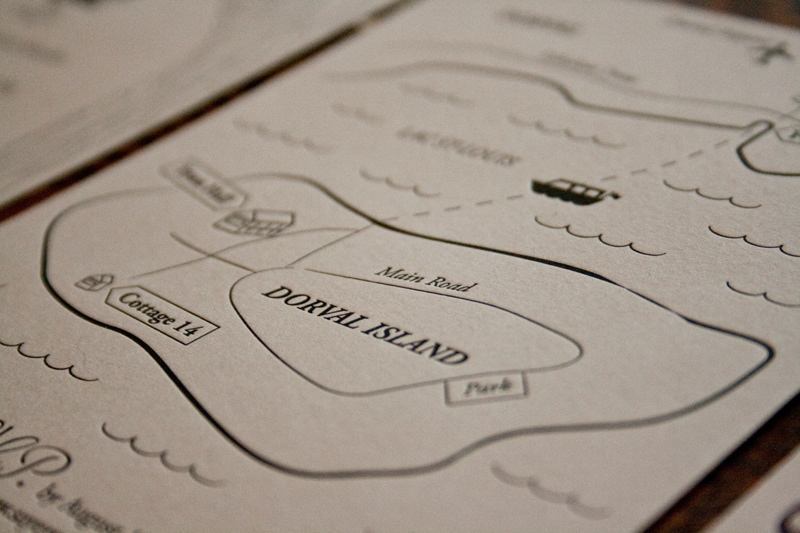 LAC ST-LOUIS
Town Hall
Main Road
DORVAL ISLAND
Cottage 14
Park
by August